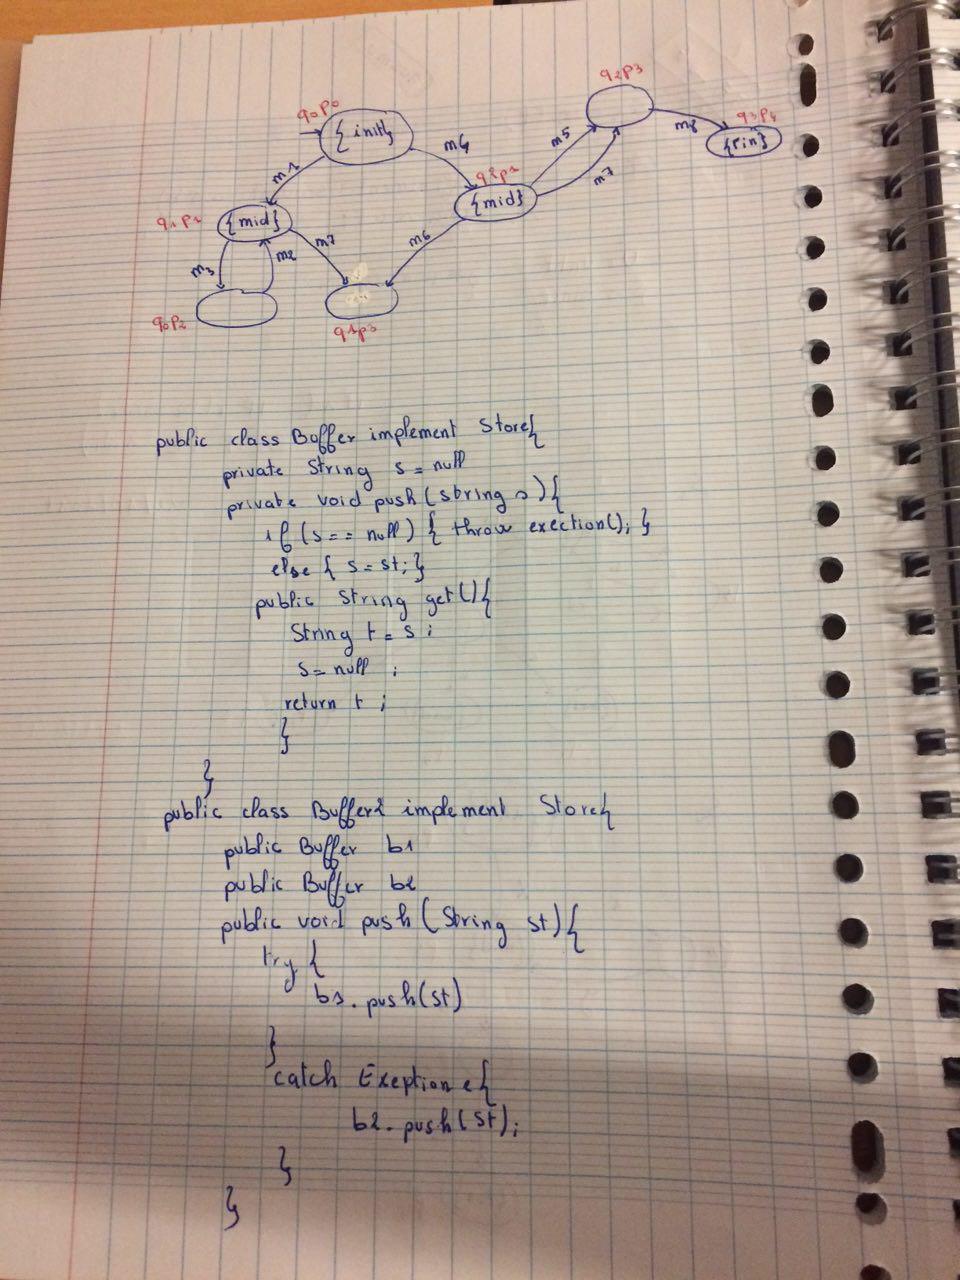 q0p0
{init}
m1
m4
q2p1
{mid}
m5
m7
q2p3
m8
q3p4
{fin}
q1p1
{mid}
m3
m2
m7
m6
q0p2
q1p3
public class Boffer implement Store{
private String s = null
private void push (string s) {
if (s == null) { throw exection(); }
else { s = st; }
public String get() {
String t = s ;
s = null ;
return t ;
}
}
public class Buffer2 implement Store{
public Buffer b1
public Buffer b2
public void push (String st) {
try {
b1. push (st)
}
catch Exeption e {
b2. push (st);
}
}